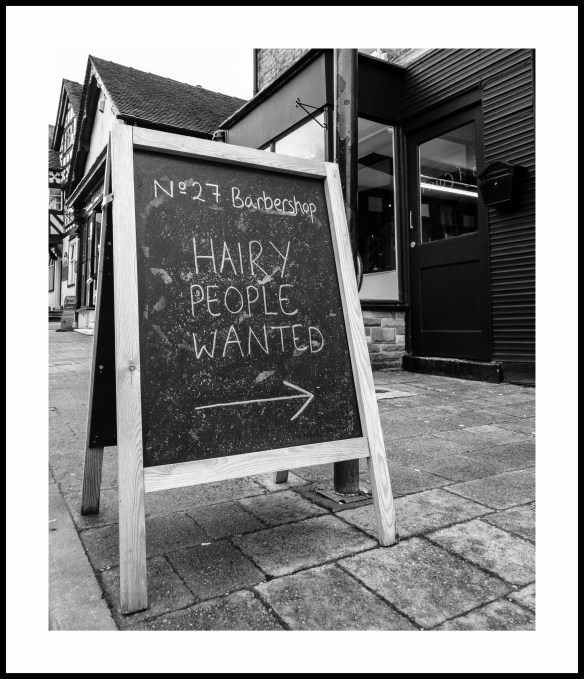 Nº27 Barbershop
HAIRY
PEOPLE
WANTED